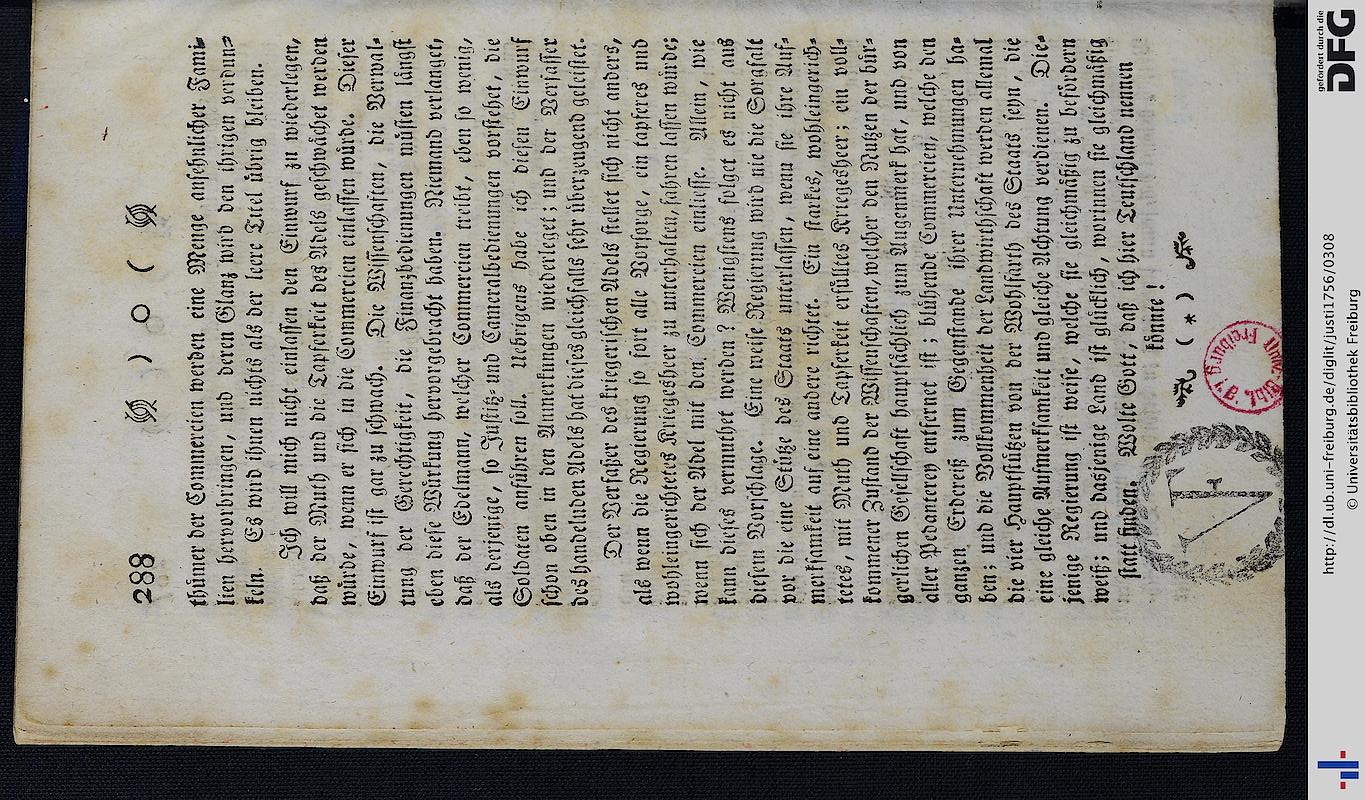 288 ) o (
thümer der Commercien werden eine Menge ansehnlicher Fami-
lien hervorbringen, und deren Glanz wird den ihrigen verdun-
keln. Es wird ihnen nichts als der leere Titel übrig bleiben.
Ich will mich nicht einlassen den Einwurf zu wiederlegen,
daß der Muth und die Tapferkeit des Adels geschwächet werden
würde, wenn er sich in die Commercien einlassen würde. Dieser
Einwurf ist gar zu schwach. Die Wissenschaften, die Verwal-
tung der Gerechtigkeit, die Finanzbedienungen müsten längst
eben diese Würkung hervorgebracht haben. Niemand verlanget,
daß der Edelmann, welcher Commercien treibt, eben so wenig,
als derjenige, so Justitz- und Cameralbedienungen vorstehet, die
Soldaten anführen soll. Uebrigens habe ich diesen Einwurf
schon oben in den Anmerkungen wiederleget; und der Verfasser
des handelnden Adels hat dieses gleichfalls sehr überzeugend geleistet.
Der Verfaßer des kriegerischen Adels stellet sich nicht anders,
als wenn die Regierung so fort alle Vorsorge, ein tapferes und
wohleingerichtetes Kriegesher zu unterhalten, fahren lassen würde;
wenn sich der Adel mit den Commercien einliesse. Allein, wie
kann dieses vermuthet werden? Wenigstens folget es nicht aus
diesem Vorschlage. Eine weise Regierung wird nie die Sorgfalt
vor die eine Stütze des Staats unterlassen, wenn sie ihre Auf-
merksamkeit auf eine andere richtet. Ein starkes, wohleingerich-
tetes, mit Muth und Tapferkeit erfülltes Kriegesheer; ein voll-
kommener Zustand der Wissenschaften, welcher den Nutzen der bür-
gerlichen Gesellschaft hauptsächlich zum Augenmerk hat, und von
aller Pedanterey entfernet ist; blühende Commercien, welche den
ganzen Erdereiß zum Gegenstande ihrer Unternehmungen ha-
ben; und die Vollkommenheit der Landwirthschaft werden allemal
die vier Hauptstützen von der Wohlfarth des Staats seyn, die
eine gleiche Aufmerksamkeit und gleiche Achtung verdienen. Die-
jenige Regierung ist weise, welche sie gleichmäßig zu befördern
weiß; und dasjenige Land ist glücklich, worinnen sie gleichmäßig
statt finden. Wolte Gott, daß ich hier Teutschland nennen
könnte!
( * )
Freiburg
Bibl.
http://dl.ub.uni-freiburg.de/diglit/justi1756/0308
© Universitätsbibliothek Freiburg
gefördert durch die
DFG